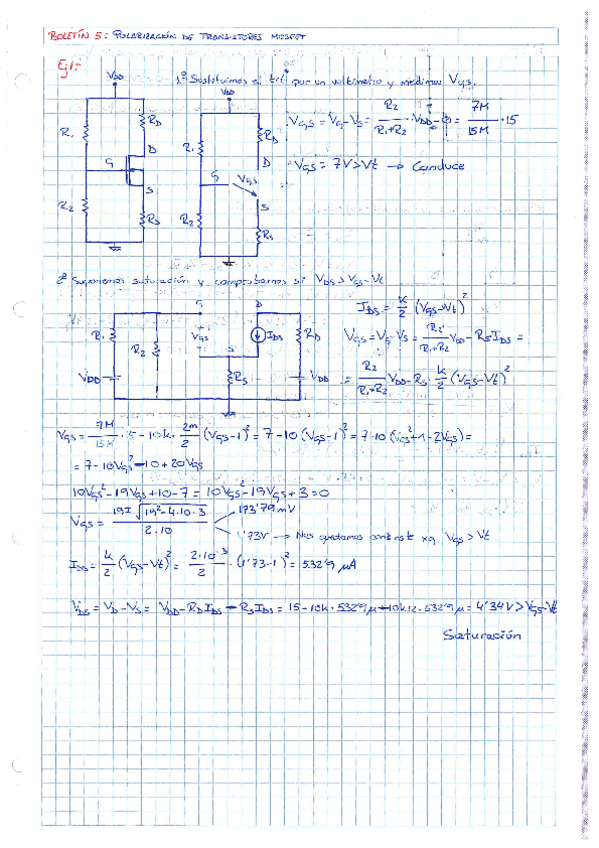 BOLETÍN 5: POLARIZACIÓN DE TRANSISTORES MOSFET
Ej1:-
1º Sustituimos el trt por un voltímetro y medimos VGS.
VDD
VDD
R1
RD
R1
RD
D
D
G
G
VGS
S
S
R2
RS
R2
RS
VGS = VG-VS = R2/(R1+R2) · VDD - 0 = 7M/15M · 15
VGS = 7V > Vt → Conduce
2º Suponemos saturación y comprobamos si VDS > VGS-Vt
G
D
R1
R2
VGS
IDS
RD
S
VDD
RS
VDD
IDS = k/2 (VGS-Vt)²
VGS = VG-VS = R2/(R1+R2) VDD - RS IDS =
= R2/(R1+R2) VDD - RS · k/2 (VGS-Vt)²
VGS = 7M/15M · 15 - 10k · 2m/2 (VGS-1)² = 7-10(VGS-1)² = 7-10(VGS²+1-2VGS) =
= 7-10VGS²-10+20VGS
10VGS²-19VGS+10-7 = 10VGS²-19VGS+3=0
VGS = 19±√(19²-4·10·3) / 2·10
173'79mV
1'73V → Nos quedamos con este xq VGS > Vt
IDS = k/2 (VGS-Vt)² = 2·10⁻³/2 · (1'73-1)² = 532'9 μA
VDS = VD-VS = VDD-RD IDS - RS IDS = 15-10k·532'9μ-10k·532'9μ = 4'34V > VGS-Vt
Saturación